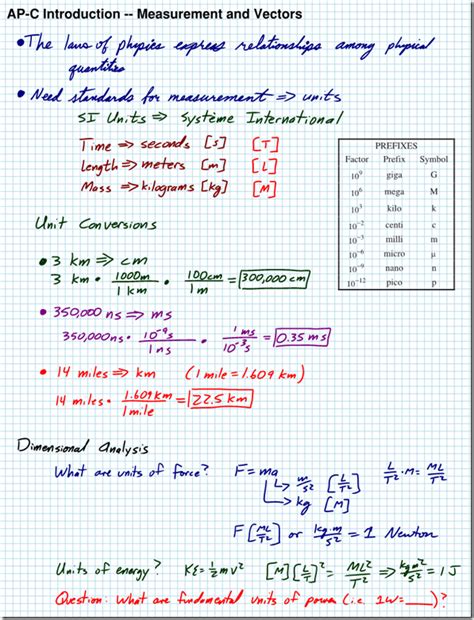 AP-C Introduction -- Measurement and Vectors
• The laws of physics express relationships among physical
quantities
• Need standards for measurement ⇒ units
SI Units ⇒ Système International
Time ⇒ seconds [s] [T]
Length ⇒ meters [m] [L]
Mass ⇒ kilograms [kg] [M]
PREFIXES
Factor Prefix Symbol
10⁹ giga G
10⁶ mega M
10³ kilo k
10⁻² centi c
10⁻³ milli m
10⁻⁶ micro μ
10⁻⁹ nano n
10⁻¹² pico p
Unit Conversions
• 3 km ⇒ cm
3 km • 1000m/1 km • 100cm/1m = 300,000 cm
• 350,000 ns ⇒ ms
350,000ns • 10⁻⁹s/1ns • 1 ms/10⁻³s = 0.35 ms
• 14 miles ⇒ km (1 mile = 1.609 km)
14 miles • 1.609 km/1 mile = 22.5 km
Dimensional Analysis
What are units of force? F = ma L/T² · M = ML/T²
m/s² [L/T²]
kg [M]
F [ML/T²] or kg·m/s² = 1 Newton
Units of energy? KE = ½mv² [M][L/T]² = ML²/T² ⇒ kg m²/s² = 1 J
Question: What are fundamental units of power (i.e. 1W=____)